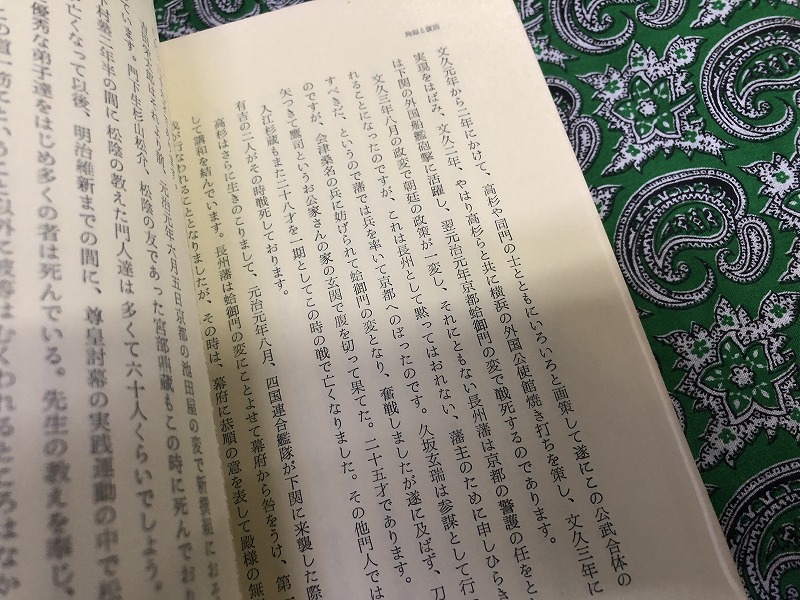 文久元年から二年にかけて、高杉や同門の士とともにいろいろと画策して遂にこの公武合体の
実現をはばみ、文久二年、やはり高杉らと共に横浜の外国公使館焼き打ちを策し、文久三年に
は下関の外国船艦砲撃に活躍し、翌元治元年京都蛤御門の変で戦死するのであります。
文久三年八月の政変で朝廷の政策が一変し、それにともない長州藩は京都の警護の任をと
れることになったのですが、これは長州として黙ってはおれない、藩主のために申しひらき
すべきだ、というので藩では兵を率いて京都へのぼったのです。久坂玄瑞は参謀として行
のですが、会津桑名の兵に妨げられて蛤御門の変となり、奮戦しましたが遂に及ばず、刀
矢つきて鷹司というお公家さんの家の玄関で腹を切って果てた。二十五才であります。
入江杉蔵もまた二十八才を一期としてこの時の戦で亡くなりました。その他門人では
有吉の二人がその時戦死しております。
高杉はさらに生きのこりまして、元治元年八月、四国連合艦隊が下関に来襲した際
して講和を結んでいます。長州藩は蛤御門の変にことよせて幕府から咎をうけ、第
が行なわれることとなりましたが、その時は、幕府に恭順の意を表して殿様の無
元治元年六月五日京都の池田屋の変で新撰組におそ
ています。門下生杉山松介、松陰の友であった宮部鼎蔵もこの時に死んでお
下村塾二年半の間に松陰の教えた門人達は多くて六十人くらいでしょう。
亡くなって以後、明治維新までの間に、尊皇討幕の実践運動の中で松
優秀な弟子達をはじめ多くの者は死んでいる。先生の教えを奉じ、